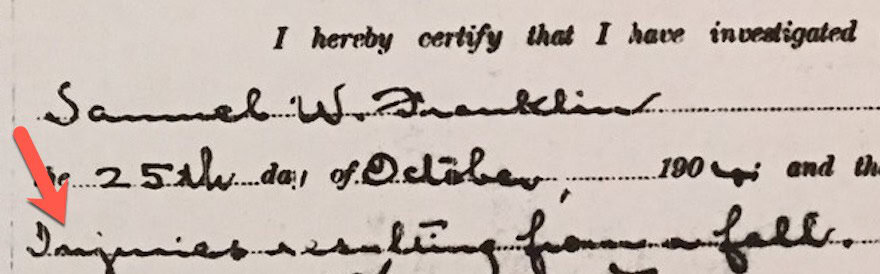 I hereby certify that I have investigated
Samuel W. Franklin
the 25th day of October, 190 ; and the
Injuries resulting from a fall.